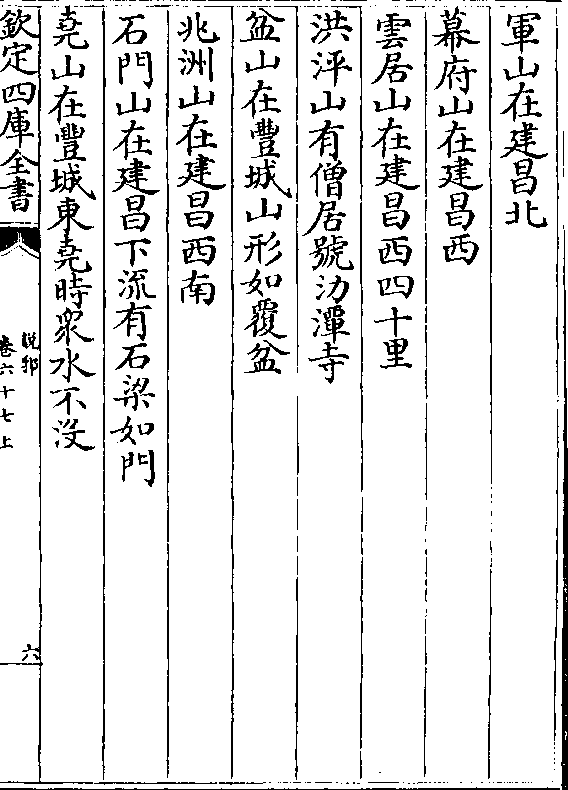 軍山在建昌北
幕府山在建昌西
雲居山在建昌西四十里
洪泙山有僧居號泐潭寺
盆山在豐城山形如覆盆
兆洲山在建昌西南
石門山在建昌下流有石梁如門
堯山在豐城東堯時衆水不沒
欽定四庫全書
說郛
卷六十七上
六